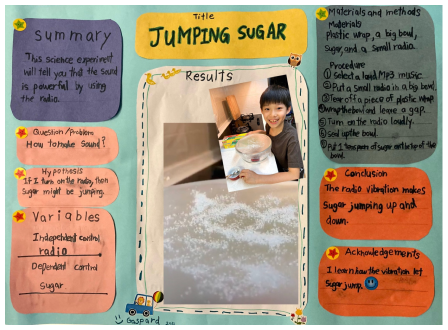 Summary
This science experiment
will tell you that the sound
is powerful by using
the radio.
Question/Problems
How to make sound?
Hypothesis
If I turn on the radio, then
Sugar might be jumping.
Variables
Independent control
radio
Dependent control
sugar
Title
JUMPING SUGAR
Results
Gaspard
Materials and methods
Materials
Plastic wrap, a big bowl,
Sugar, and a small radio.
Procedure
① Select a loud MP3 music.
② Put a small radio in a big bowl.
③ Tear off a piece of plastic wrap
④ wrap the bowl and leave a gap.
⑤ Turn on the radio loudly.
⑥ Seal up the bowl.
⑦ Put 1 teaspoon of sugar on the top of the
bowl.
Conclusion
The radio vibration makes
Sugar jumping up and
down.
Acknowledgements
I learn how the vibration let
Sugar jump.